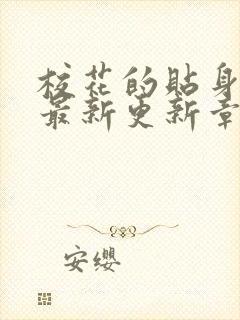 校花的贴身
最新更新章
安缨